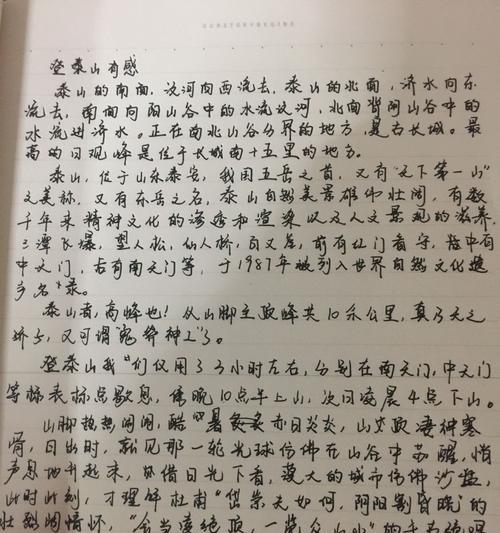 登泰山有感
泰山的南面,汶河向西流去,泰山的北面,济水向东
流去,南面向阳山谷中的水流汶河,北面背阴山谷中的
水流进济水。正在南北山谷分界的地方,是古长城。最
高的日观峰是位于长城南十五里的地方。
泰山,位于山东泰安,我国五岳之首,又有“天下第一山”
之美称,又有东岳之名,泰山自然美景雄伟壮阔,有数
千年来精神文化的渗透和渲染以及人文景观的滋养,
三潭飞瀑,望人松,仙人桥,百丈崖,前有红门看守,中有
中天门,后有南天门等,于1987年被列入世界自然文化遗
产名录。
泰山者,高峰也!从山脚至顶峰共10余公里,真乃天之
骄子,又可谓“鬼斧神工”了。
登泰山我们仅用了3小时左右,分别在南天门,中天门
等标表标点歇息,傍晚10点半上山,次日凌晨4点下山。
山脚热热闹闹,酷暑赤日炎炎,山顶凄神寒
骨,日出时,就见那一轮光球仿佛在山谷中苏醒,悄
声息地升起来,借日光下看,莫大的城市仿佛沙盘,
此时此刻,才理解杜甫“岱宗夫如何,阴阳割昏晓”的
壮烈情怀,“会当凌绝顶,一览众山小”的